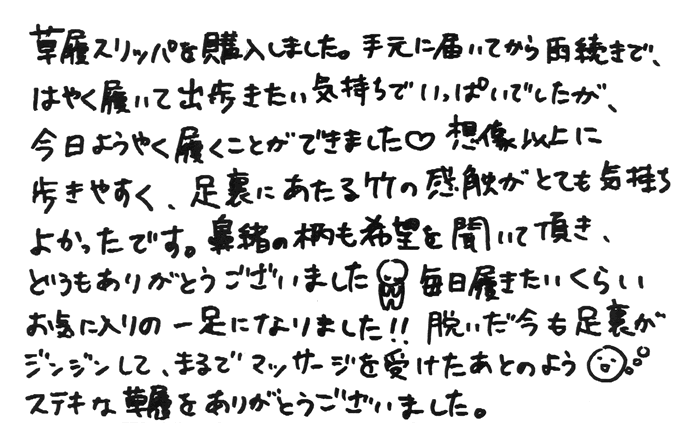 草履スリッパを購入しました。手元に届いてから雨続きで、
はやく履いて出歩きたい気持ちでいっぱいでしたが、
今日ようやく履くことができました♡ 想像以上に
歩きやすく、足裏にあたる竹の感触がとても気持ち
よかったです。鼻緒の柄も希望を聞いて頂き、
どうもありがとうございました 毎日履きたいくらい
お気に入りの一足になりました!! 脱いだ今も足裏が
ジンジンして、まるでマッサージを受けたあとのよう
ステキな草履をありがとうございました。